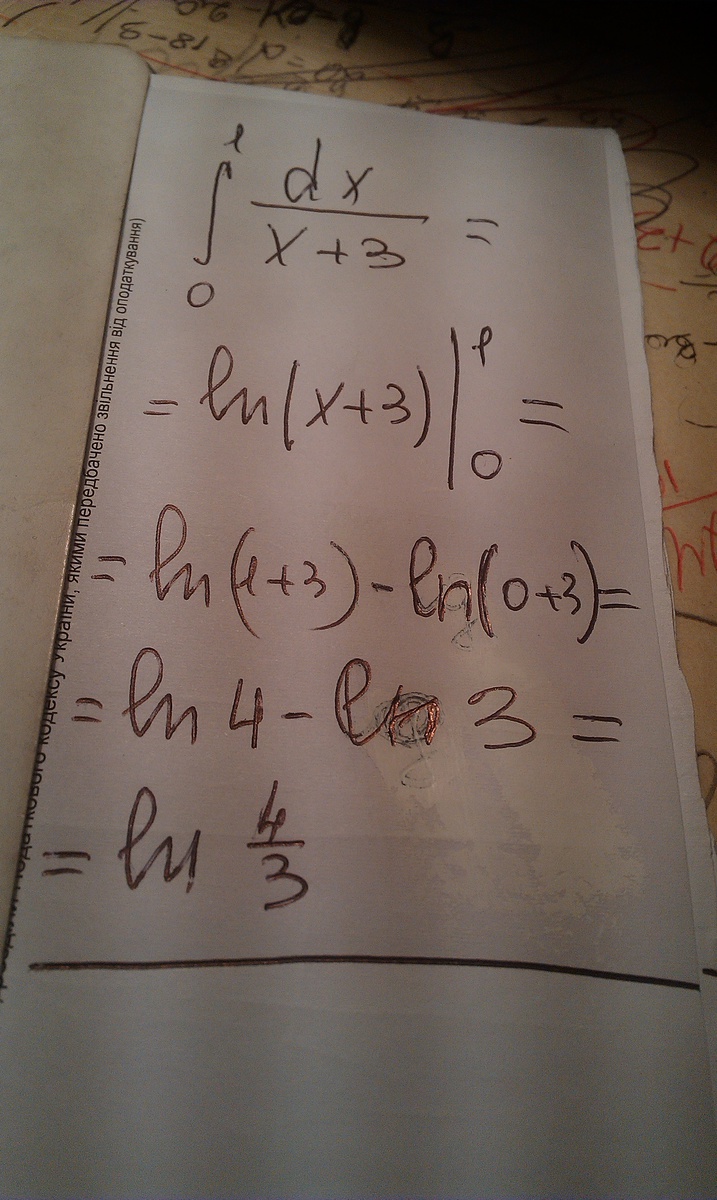 ∫₀¹ dx/(x+3) =
= ln(x+3)|₀¹ =
= ln(1+3) - ln(0+3) =
= ln 4 - ln 3 =
= ln 4/3
кодексу України, якими передбачено звільнення від оподаткування)